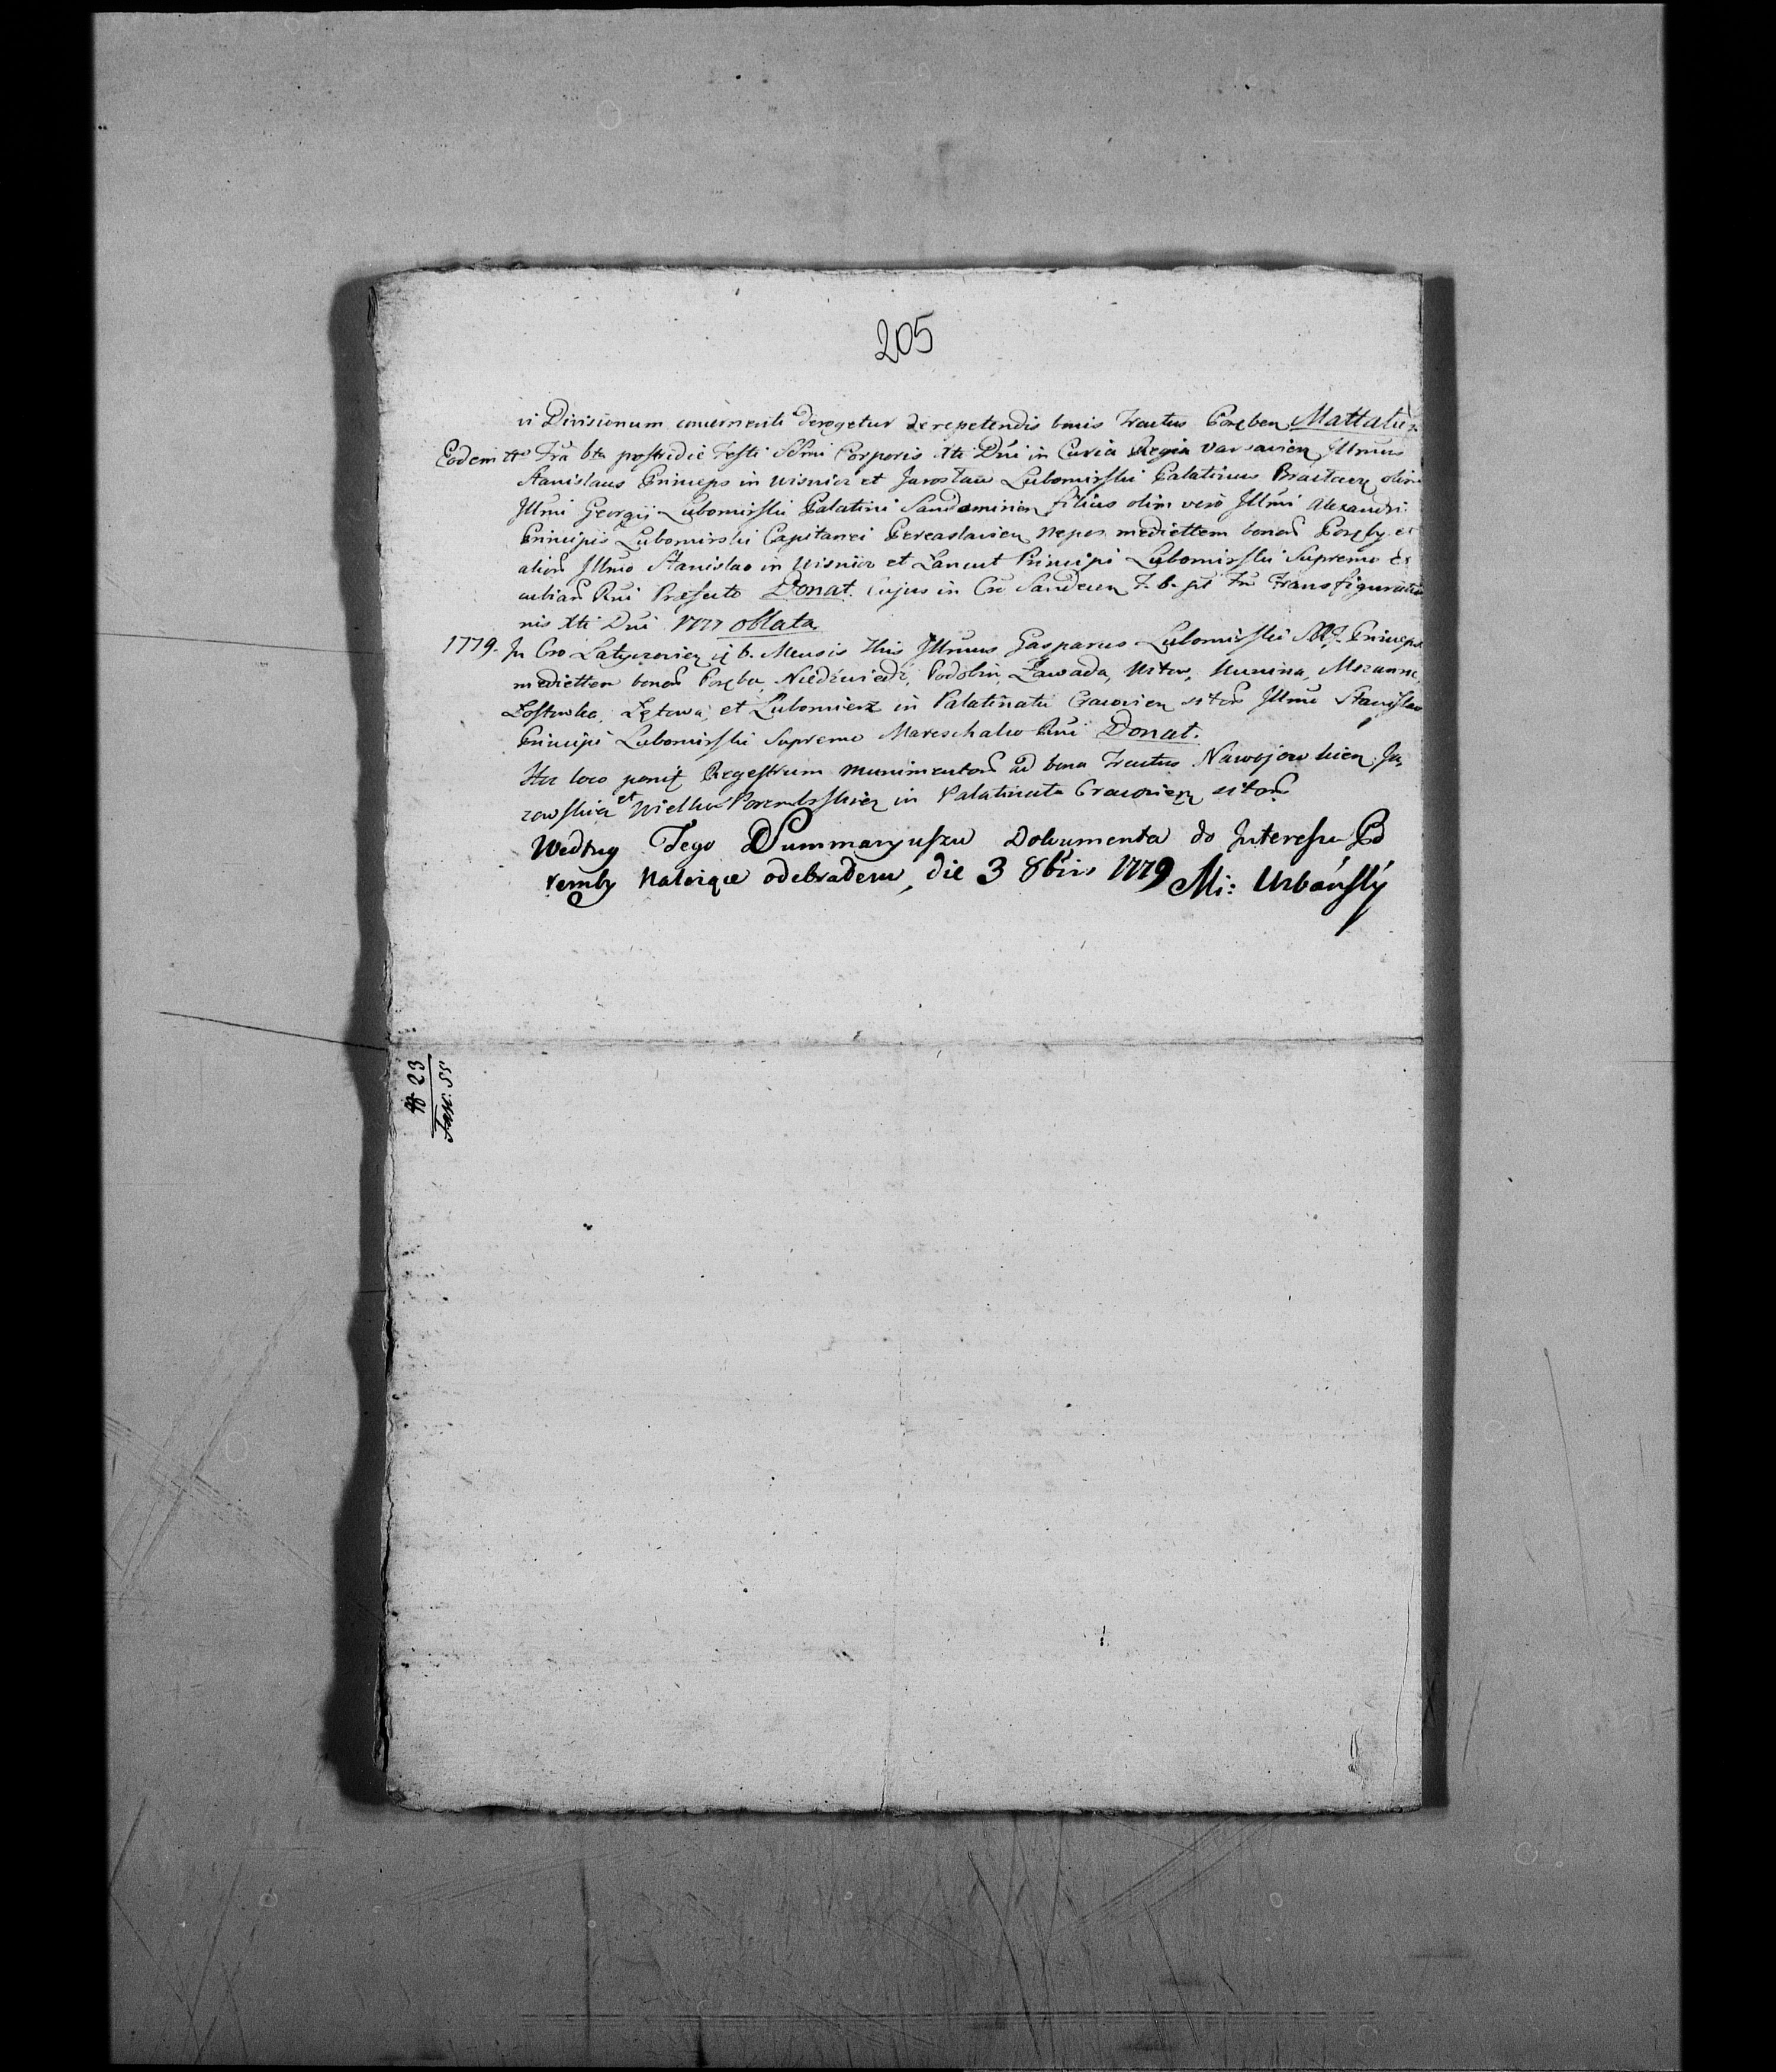 205
vi Divisionum concernenti derogetur de repetendis bonis Tractus Poręben Mattatus
Eodem tto Fra 6ta postridie Festi SSmi Corporis Xti Dni in Curia Regia Varsavien Illmus
Stanislaus Princeps in Wisnicz et Jarosław Lubomirski Palatinus Braclavien olim
Illmi Georgii Lubomirski Palatini Sandomirien filius olim vero Illmi Alexandri
Principis Lubomirski Capitanei Pereaslavien Nepos mediettem bonor Poręby et
alior Illmo Stanislao in Wisnicz et Lancut Principi Lubomirski Supremo Ex
cubiar Rni Praefecto Donat. Cujus in Cro Sandecen F. 6. pst Fm Transfiguratio
nis Xti Dni 1777 oblata
1779. In Cro Latyczovien 6. Mensis Illmus Gasparus Lubomirski Princeps
mediettem bonor Poręba, Niedźwiedź, Podobin, Zawada, Witow, Hunina, Mszanna,
Łostowka, Łętowa, et Lubomierz in Palatinatu Cracovien sitor Illmo Stanislao
Principi Lubomirski Supremo Mareschalco Rni Donat.
Hoc loco ponit Regestrum munimentor ad bona Tractus Nawojowkien, Ja,
zowskie et Wielko Porembskien in Palatinatu Cracovien sitor
Według Tego Summaryuszu Dokumenta do Interessu Po
remby Należące odebrałem, die 3 8bris 1779 Mi: Urbánsky
# 23
Fasc: 55